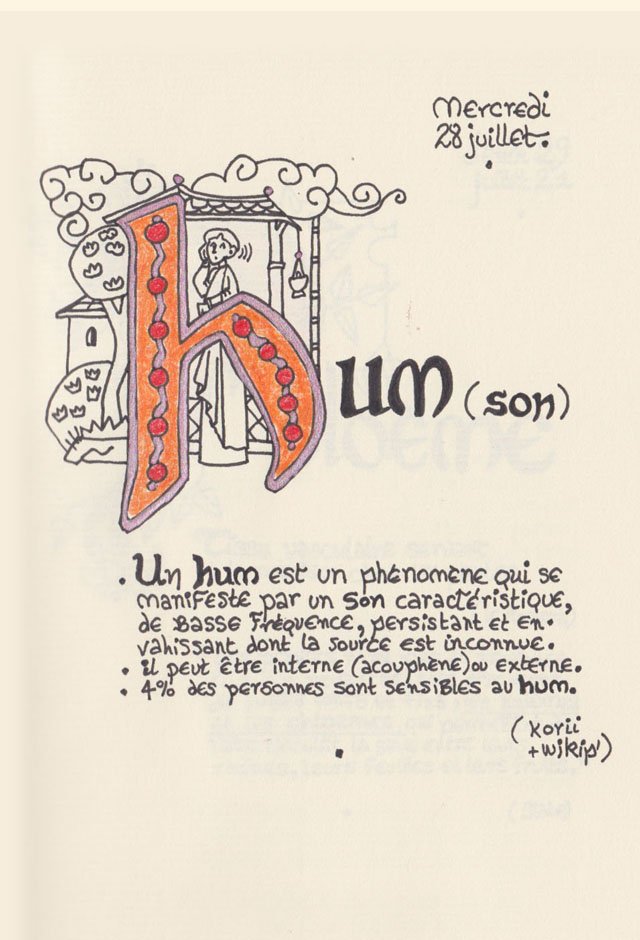 Mercredi
28 juillet.
hum (son)
. Un hum est un phénomène qui se
manifeste par un son caractéristique,
de basse fréquence, persistant et en-
vahissant dont la source est inconnue.
. il peut être interne (acouphène) ou externe.
. 4% des personnes sont sensibles au hum.
(korii
+wikip')